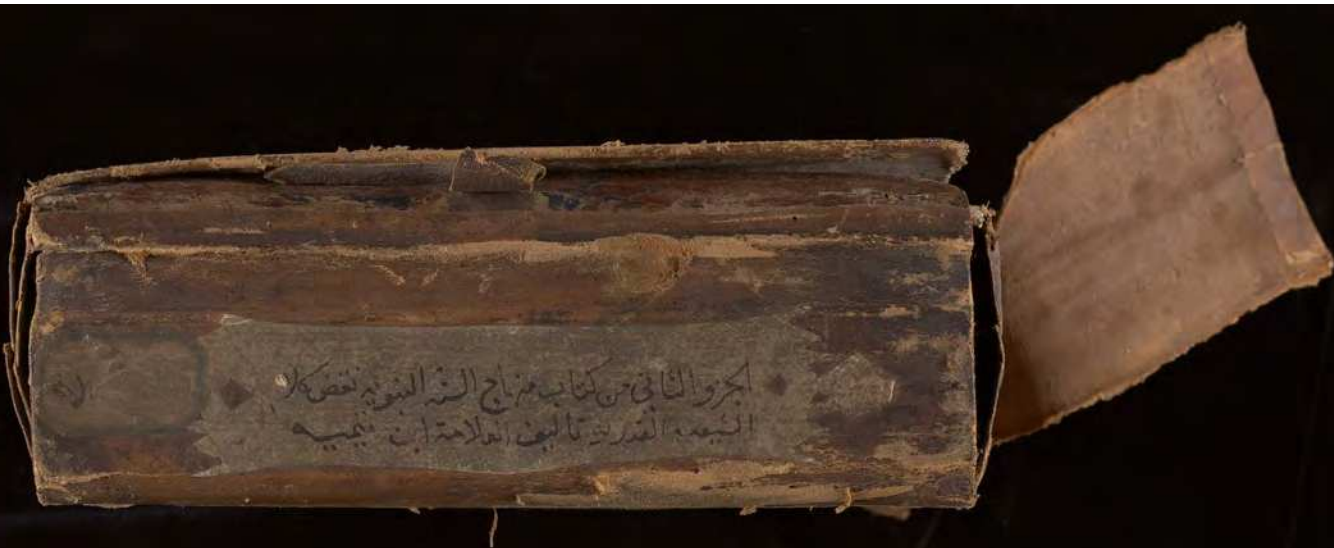 الجزو الثاني من كتاب منهاج السنه النبويه نقض كلام
الشيعه القدريه تاليف العلامة ابن تيميه